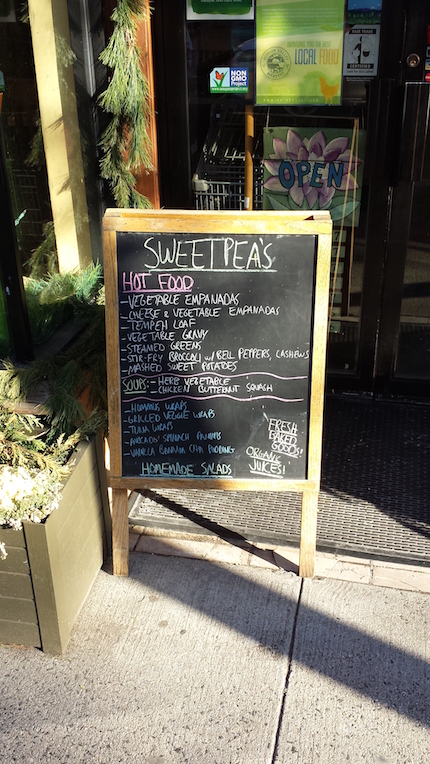 NON
GMO
Project
LOCAL FOOD
OPEN
SWEETPEA'S
HOT FOOD
- VEGETABLE EMPANADAS
- CHEESE & VEGETABLE EMPANADAS
- TEMPEH LOAF
- VEGETABLE GRAVY
- STEAMED GREENS
- STIR-FRY BROCCOLI w/ BELL PEPPERS, CASHEWS
- MASHED SWEET POTATOES
SOUPS: - HERB VEGETABLE
- CHICKEN BUTTERNUT SQUASH
- HUMMUS WRAPS
- GRILLED VEGGIE WRAPS
- TUNA WRAPS
- AVOCADO SPINACH
- VANILLA BANANA CHIA PUDDING
HOMEMADE SALADS
FRESH
BAKED
GOODS!
ORGANIC
JUICES!